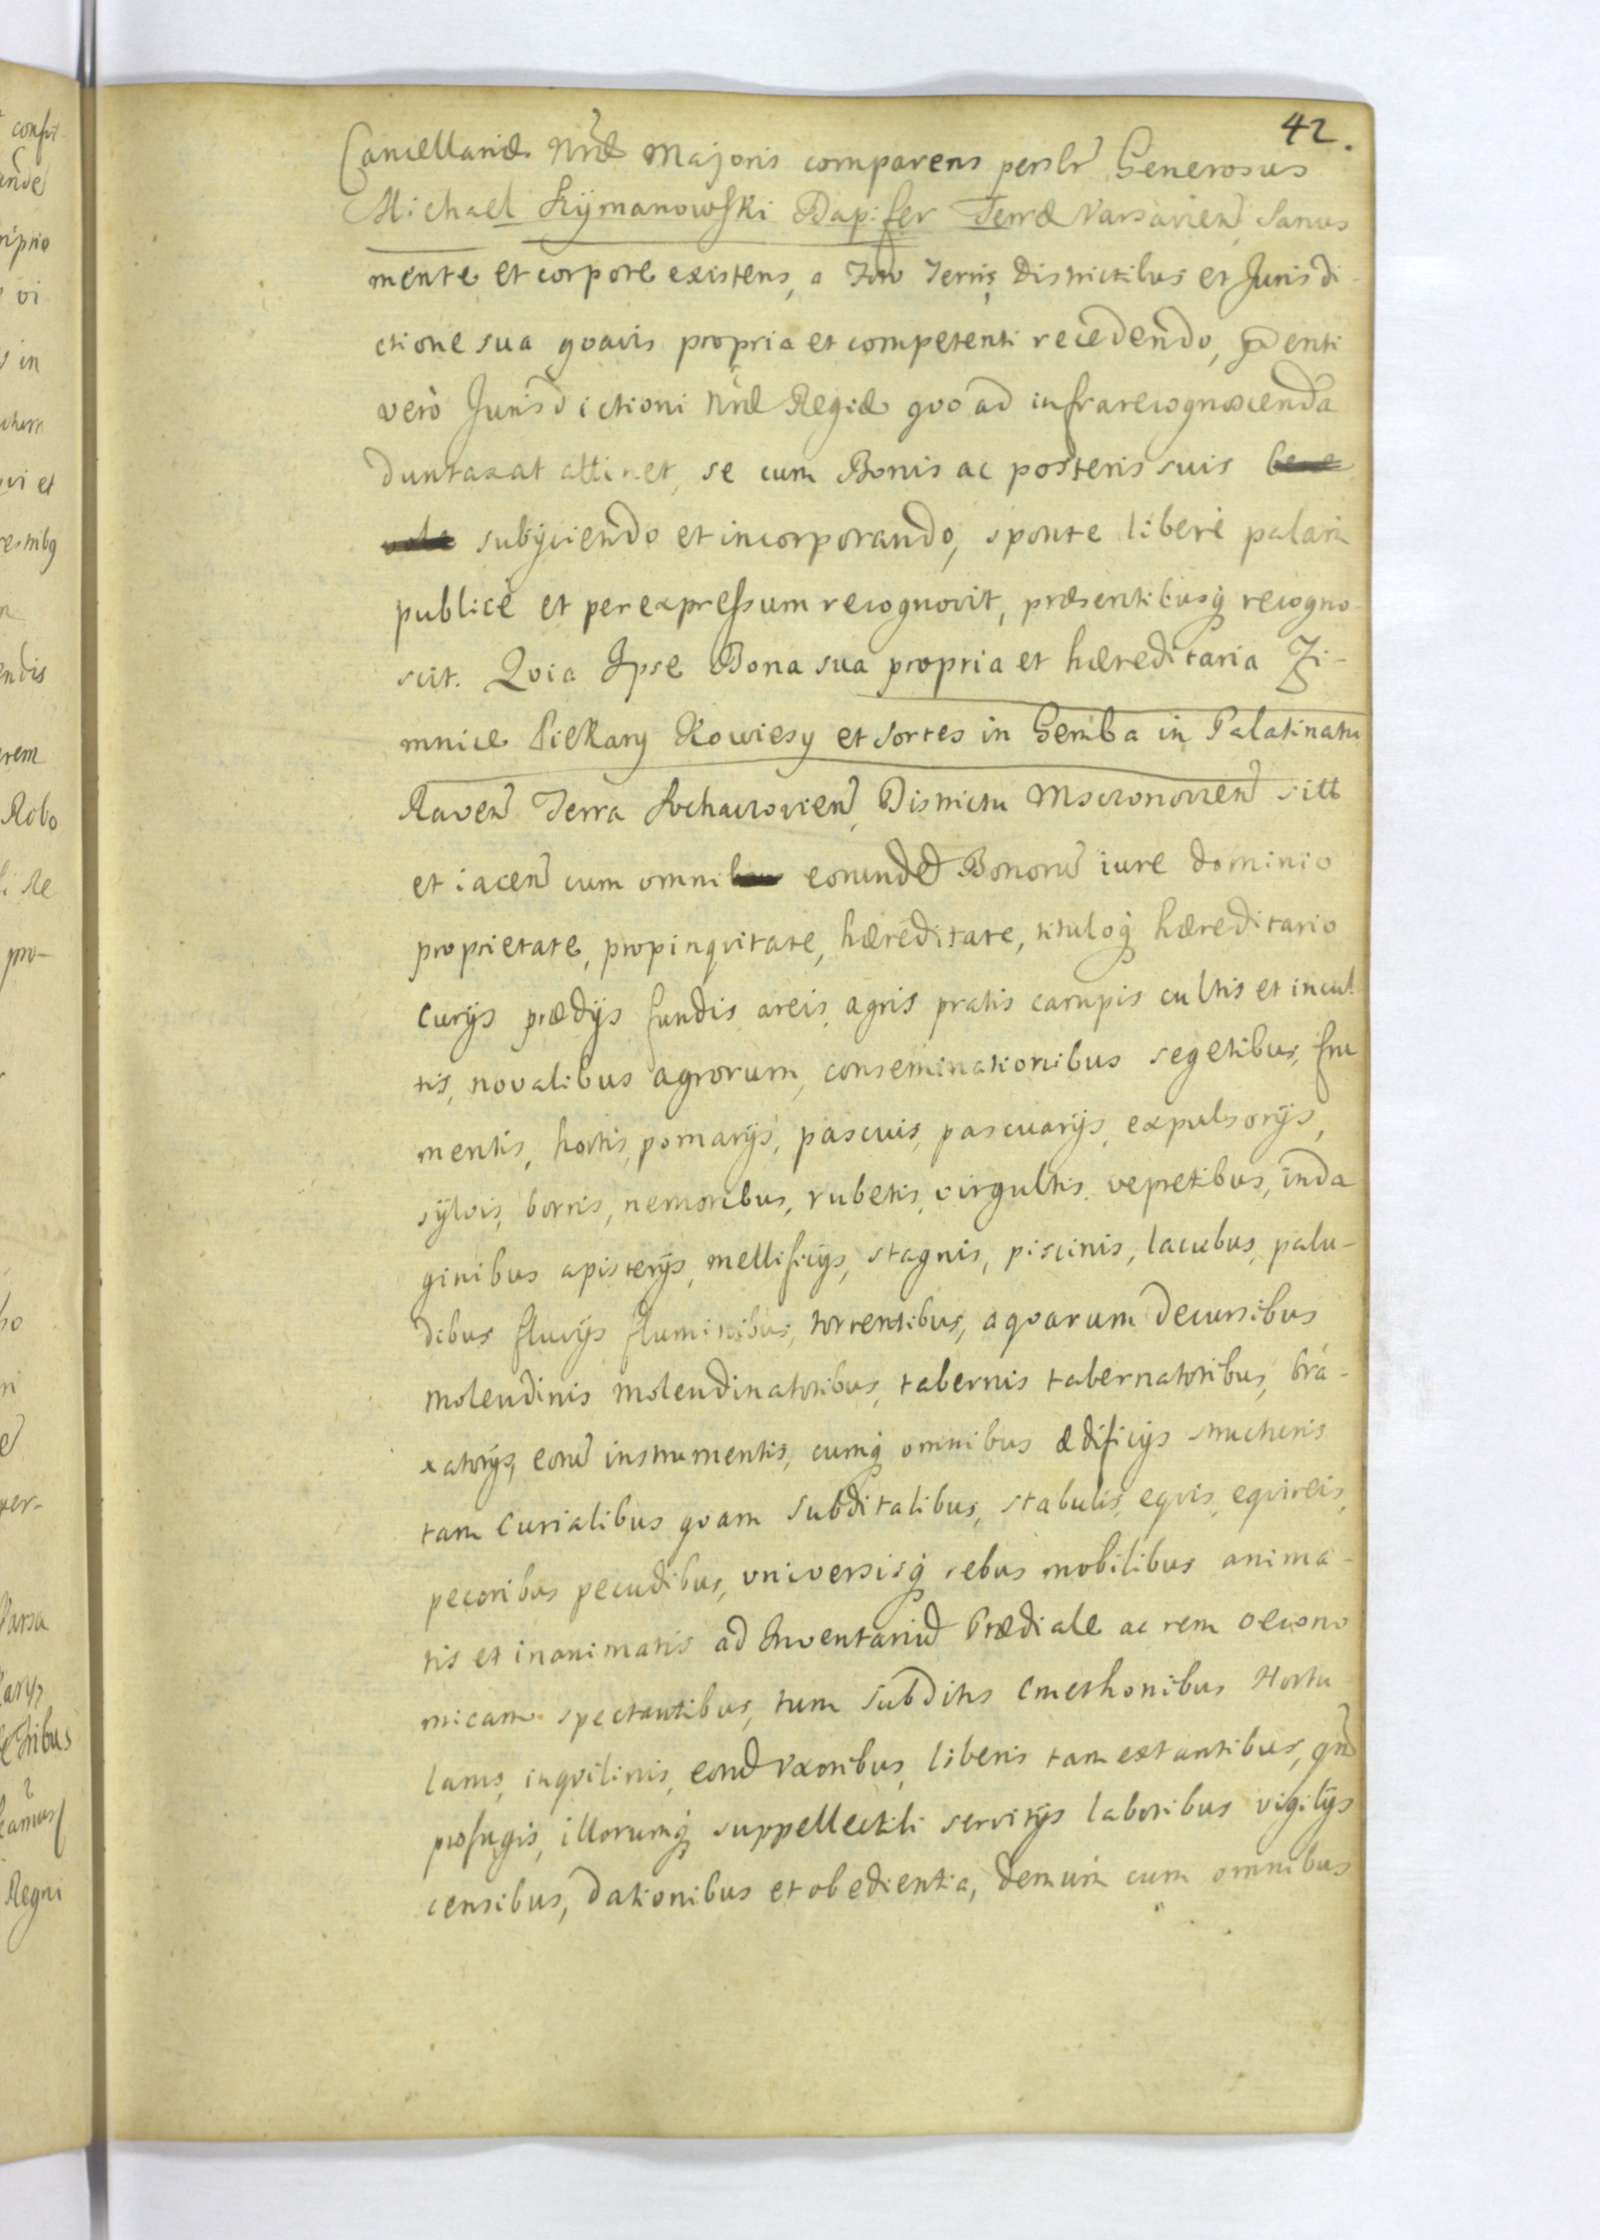 42.
Cancellariæ Nræ Majoris comparens persler Generosus
Michael Rÿmanowski Dapifer Terræ Varsavien, sanus
mente et corpore existens, a Foro Terris, Districtibus et Jurisdi-
ctione sua qvavis propria et competenti recedendo, Pnti
verò Jurisdictioni Nræ Regiæ qvo ad infrarecognoscenda
duntaxat attinet, se cum Bonis ac posteris suis
subÿciendo et incorporando, sponte liberè palam
publicè et per expressum recognovit, præsentibusq recogno-
scit. Qvia Ipse Bona sua propria et hæreditaria Zi-
mnice Piekary Kowiesy et sortes in Gemba in Palatinatu
Raven Terra Sochaczovien, Districtu Msczonovien sitt
et iacen cum omni eorunde Bonoru iure dominio
proprietate, propinqvitate, hæreditate, tituloq hæreditario
curÿs prædÿs fundis areis, agris pratis campis cultis et incul
tis, novalibus agrorum, conseminationibus segetibus, fru
mentis, hortis, pomarÿs, pascuis, pascuarÿs, expulsorÿs,
sÿlvis, borris, nemoribus, rubetis, virgultis, vepretibus, inda
ginibus apisterÿs, mellificÿs, stagnis, piscinis, lacubus, palu-
dibus fluvÿs fluminibus, torrentibus, aqvarum decursibus
molendinis molendinatoribus, tabernis tabernatoribus, bra-
xatorÿs, eoru instrumentis, cumq omnibus ædificÿs structuris
tam curialibus qvam subditalibus, stabulis, eqvis, eqvireis,
pecoribus pecudibus, vniversisq rebus mobilibus anima-
tis et inanimatis ad Inventariu Prædiale ac rem oecono
micam spectantibus, tum subditis Cmethonibus Hortu
lanis, inqvilinis, eorud Vxoribus, liberis tam extantibus, qm
profugis, illorumq suppellectili servitÿs laboribus vigilÿs
censibus, dationibus et obedientia, demum cum omnibus